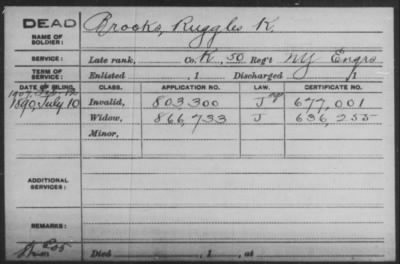 DEAD
NAME OF SOLDIER: Brooks, Ruggles K.
SERVICE: Late rank, Co. K, 50 Reg't NY Engrs
TERM OF SERVICE: Enlisted , 1 Discharged , 1
DATE OF FILING. CLASS. APPLICATION NO. LAW. CERTIFICATE NO.
1890, July 10 Invalid, 803300 J 677,001
Widow, 866,733 J 636,255
Minor,
ADDITIONAL SERVICES:
REMARKS:
Died , 1 , at